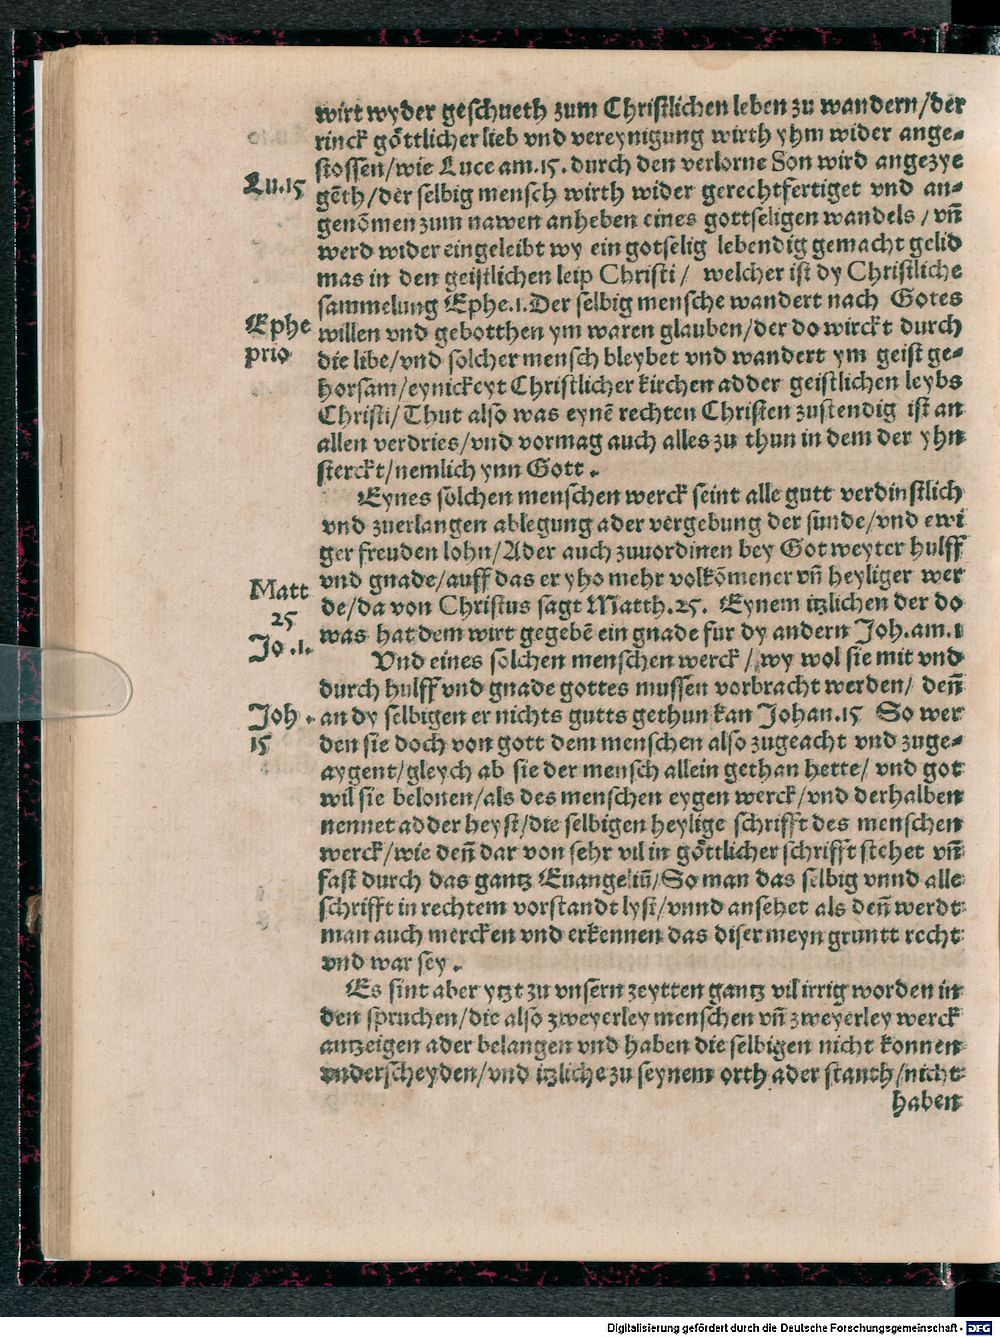 wirt wyder geschueth zum Christlichen leben zu wandern/der
rinck göttlicher lieb vnd vereynigung wirth yhm wider ange⸗
stossen/wie Luce am.15. durch den verlorne Son wird angezye
Lu.15
gēth/der selbig mensch wirth wider gerechtfertiget vnd an⸗
genōmen zum nawen anheben eines gottseligen wandels/vn̄
werd wider eingeleibt wy ein gotselig lebendig gemacht gelid
mas in den geistlichen leip Christi/ welcher ist dy Christliche
sammelung Ephe.1.Der selbig mensche wandert nach Gotes
Ephe
prio
willen vnd gebotthen ym waren glauben/der do wirckt durch
die libe/vnd solcher mensch bleybet vnd wandert ym geist ge⸗
horsam/eynickeyt Christlicher kirchen adder geistlichen leybs
Christi/Thut also was eynē rechten Christen zustendig ist an
allen verdries/vnd vormag auch alles zu thun in dem der yhn
sterckt/nemlich ynn Gott.
Eynes solchen menschen werck seint alle gutt verdinstlich
vnd zuerlangen ablegung ader vergebung der sunde/vnd ewi
ger freuden lohn/Ader auch zuuordinen bey Got weyter hulff
Matt
25
vnd gnade/auff das er yho mehr volkōmener vn̄ heyliger wer
de/da von Christus sagt Matth.25. Eynem itzlichen der do
Jo.1.
was hat dem wirt gegebē ein gnade fur dy andern Joh.am.1
Vnd eines solchen menschen werck/wy wol sie mit vnd
durch hulff vnd gnade gottes mussen vorbracht werden/ den̄
Joh.
15
an dy selbigen er nichts gutts gethun kan Johan.15 So wer
den sie doch von gott dem menschen also zugeacht vnd zuge⸗
aygent/gleych ab sie der mensch allein gethan hette/ vnd got
wil sie belonen/als des menschen eygen werck/vnd derhalben
nennet adder heyst/die selbigen heylige schrifft des menschen
werck/wie den̄ dar von sehr vil in göttlicher schrifft stehet vn̄
fast durch das gantz Euangeliū/So man das selbig vnnd alle
schrifft in rechtem vorstandt lyst/vnnd ansehet als den̄ werdt
man auch mercken vnd erkennen das diser meyn gruntt recht
vnd war sey.
Es sint aber ytzt zu vnsern zeytten gantz vil irrig worden in
den spruchen/die also zweyerley menschen vn̄ zweyerley werck
antzeigen ader belangen vnd haben die selbigen nicht konnen
vnderscheyden/vnd itzliche zu seynem orth ader stanth/nicht
haben
Digitalisierung gefördert durch die Deutsche Forschungsgemeinschaft - DFG